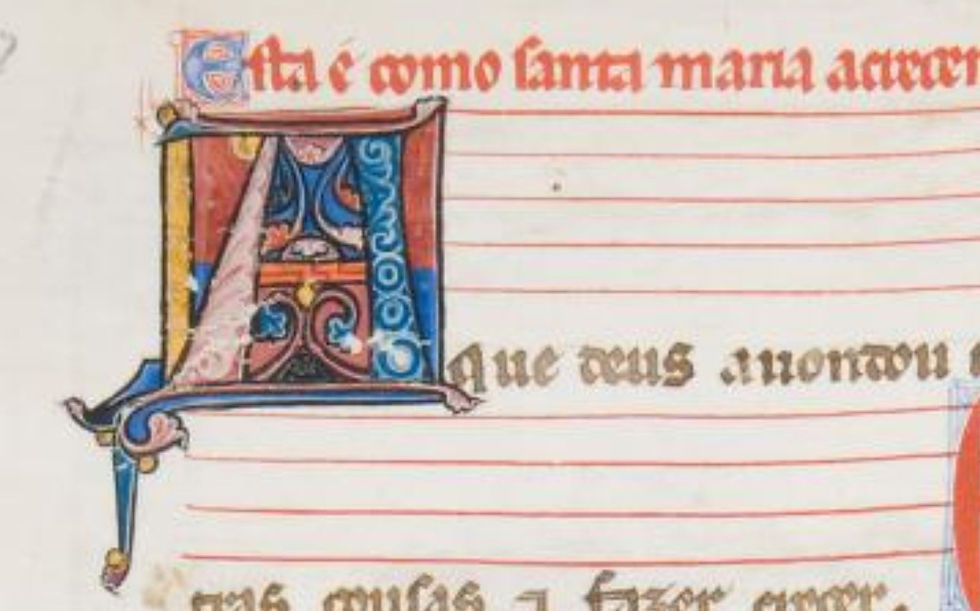 Esta é como santa maria acrecen
A que deus auondou
tras cousas ⁊ fazer crecer.